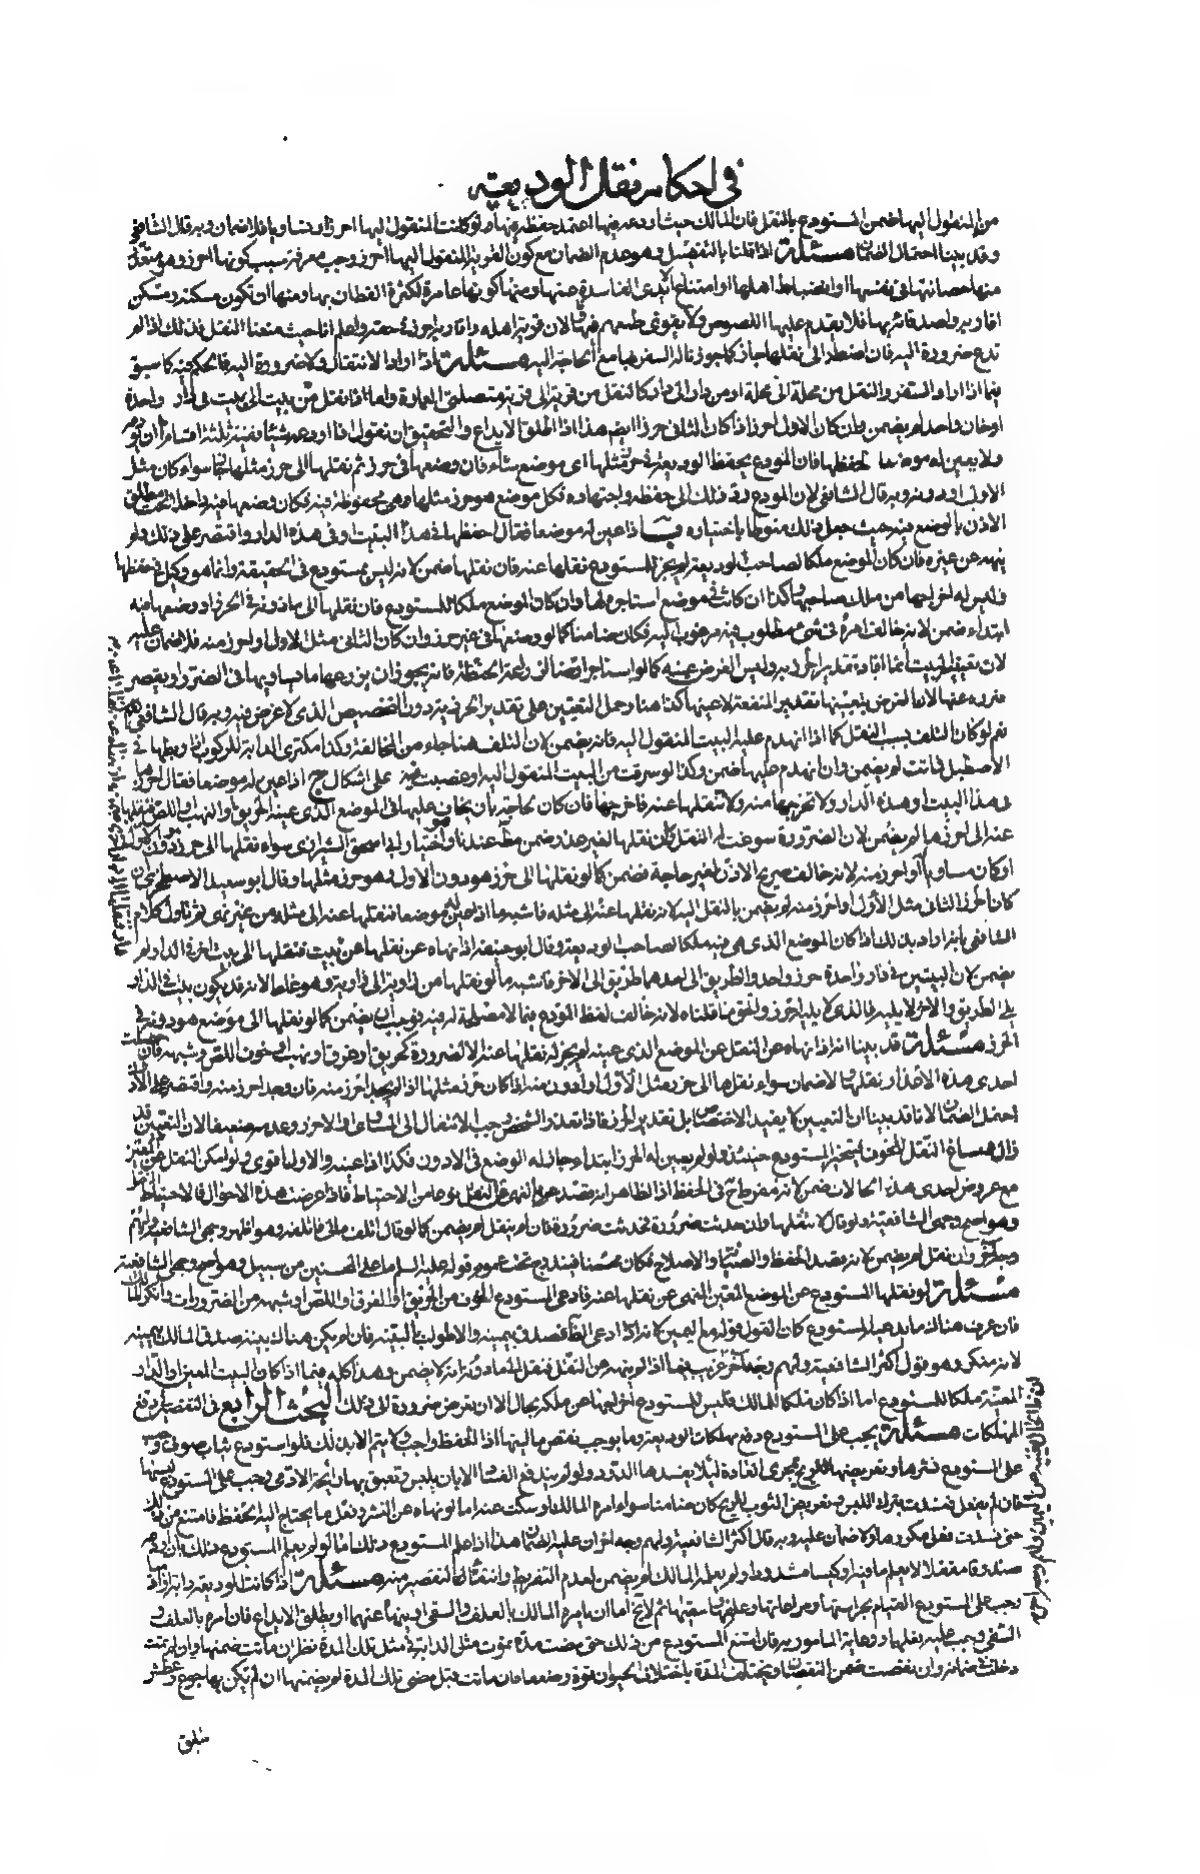 في احكام نقل الوديعة
من المنقول اليها ضمن المستودع بالنقل فان المالك حيث اودعه فيها اعتمد حفظه فيها ولو كانت المنقول اليها احرز او تساويا فلا ضمان وبه قال الشافعي
وقد بينا احتمال الضمان مسئلة اذا قلنا بالتفصيل وهو عدم الضمان مع كون القرية المنقول اليها احرز وجب معرفة سبب كونها احرز وهو متعدد
منها حصانتها في نفسها او انضباط اهلها او امتناع الايدي الفاسدة عنها ومنها كونها عامرة لكثرة القطان بها ومنها ان تكون مسكنه ومسكن
اقاربه واصدقائه بها فلا يقدم عليها اللصوص ولا يقوى طمعهم فيها لان قرية اهله واقاربه احرز في حقه واعلم انا حيث منعنا النقل فذلك اذا لم
تدع ضرورة اليه فان اضطر الى نقلها جاز كما جوزنا له السفر بها مع الحاجة اليه مسئلة اذا اراد الانتقال ولا ضرورة اليه فالحكم فيه كما سبق
فيما اذا اراد السفر والنقل من محلة الى محلة او من دار الى دار كالنقل من قرية الى قرية متصلتي العمارة واما اذا نقل من بيت الى بيت في دار واحدة
او خان واحد لم يضمن وان كان الاول احرز اذا كان الثاني حرزا ايضا هذا اذا اطلق الايداع والتحقيق ان نقول اذا اودعه شيئا فيه ثلثة اقسام ا ان يودعه
ولا يعين له موضعا لحفظها فان المودع يحفظ الوديعة في حرز مثلها اي موضع شاء فان وضعها في حرز ثم نقلها الى حرز مثلها جاز سواء كان مثل
الاول او دونه وبه قال الشافعي لان المودع رد ذلك الى حفظه واجتهاده فكل موضع هو حرز مثلها وهي محفوظة فيه فكان وضعها فيه داخلا تحت مطلق
الاذن بالوضع فيه حيث جعل ذلك منوطا باختياره ب اذا عين له موضعا فقال احفظها في هذا البيت او في هذه الدار واقتصر على ذلك ولم
ينهه عن غيره فان كان الموضع ملكا لصاحب الوديعة لم يجز للمستودع نقلها عنه فان نقلها ضمن لانه ليس بمستودع في الحقيقة وانما هو وكيل في حفظها
وليس له اخراجها من ملك صاحبها وكذا ان كانت في موضع استاجره لها وان كان الموضع ملكا للمستودع فان نقلها الى ما دونه في الحرز او وضعها فيه
ابتداء ضمن لانه خالف امره في شيء مطلوب فيه مرغوب اليه فكان ضامنا كما لو وضعها في غير حرز وان كان الثاني مثل الاول او احرز منه فلا ضمان عليه
لان تعيينه البيت انما افاد تقدير الحرز به وليس الغرض عينه كما لو استاجر ارضا لزراعة الحنطة فانه يجوز ان يزرعها ما يساويها في الضرر او يقصر
ضرره عنها لان الغرض بتعيينها تقدير المنفعة لا عينها كذا هنا وحمل التعيين على تقدير الحرفية دون التخصيص الذي لا غرض فيه وبه قال الشافعي
نعم لو كان التلف بسبب النقل كما اذا انهدم عليه البيت المنقول اليه فانه يضمن لان التلف هنا جاء من المخالفة وكذا مكتري الدابة للركوب اذا ربطها في
الاصطبل فماتت لم يضمن وان انهدم عليها ضمن وكذا لو سرقت من البيت المنقول اليه او غصبت فيه على اشكال ج اذا عين له موضعا فقال احرزها
في هذا البيت او هذه الدار ولا تخرجها منه ولا تنقلها عنه فاخرجها فان كان لحاجة بان يخاف عليها في الموضع الذي عينه الحريق او النهب او اللص فنقلها
عنه الى احرز منها لم يضمن لان الضرورة سوغت له النقل وان نقلها لغير عذر ضمن عندنا وهو اختيار ابي اسحق الشيرازي سواء نقلها الى حرز هو دون الاول
او كان مساويا او احرز منه لانه خالف صريح الاذن لغير حاجة فضمن كما لو نقلها الى حرز هو دون الاول وهو حرز مثلها وقال ابو سعيد الاصطخري ان
كان الحرز الثاني مثل الاول او احرز منه لم يضمن بالنقل اليه لانه نقلها عنه الى مثله فاشبه ما اذا عين له موضعا فنقلها عنه الى مثله من غير نهي ثم تاول كلام
الشافعي بانه اراد بذلك اذا كان الموضع الذي هي فيه ملكا لصاحب الوديعة وقال ابو حنيفة اذا نهاه عن نقلها عن بيت فنقلها الى بيت اخر في الدار لم
يضمن لان البيتين في دار واحدة حرز واحد والطريق الى احدهما طريق الى الاخر فاشبه ما لو نقلها من زاوية الى زاوية وهو غلط لانه قد يكون بيت في الدار
يلي الطريق والاخر لا يليه فالذي لا يليه احرز والحق ما قلناه لانه خالف لفظ المودع فيما لا مصلحة له فيه فوجب ان يضمن كما لو نقلها الى موضع هو دونه في
الحرز مسئلة قد بينا انه اذا نهاه عن النقل عن الموضع الذي عينه لم يجز له نقلها عنه الا لضرورة كحريق او غرق او نهب او خوف اللص وشبهه فان حصلت
احدى هذه الاعذار نقلها ولا ضمان سواء نقلها الى حرز مثل الاول او ادون منه اذا كان حرز مثلها اذا لم يجد احرز منه فان وجد احرز منه واقتصر على الادون
احتمل الضمان لانا قد بينا ان التعيين لا يفيد الاختصاص بل تقدير الحرز فاذا تعذر الشخص وجب الانتقال الى المساوي او الاحرز وعدمه ضعيف لان التعيين قد
زال فساغ النقل للخوف فيتخير المستودع حينئذ ولو لم يعين له الحرز ابتداء جاز له الوضع في الادون فكذا اذا عينه والاول اقوى ولو امكن النقل عن المعين
مع عروض احدى هذه الحالات ضمن لانه مفرط في الحفظ اذ الظاهر انه قصد بالنهي عن النقل نوعا من الاحتياط فاذا عرضت هذه الاحوال فالاحتياط النقل
وهو اصح وجهي الشافعية ولو قال لا تنقلها وان حدثت ضرورة فحدثت ضرورة فان لم ينقل لم يضمن كما لو قال اتلف مالي فاتلفه وهو اظهر وجهي الشافعية ولهم
وجه آخر وان نقل لم يضمن لانه قصد الحفظ والصيانة والاصلاح فكان محسنا فيندرج تحت عموم قوله عليه السلام ما على المحسنين من سبيل وهو اصح وجهي الشافعية
مسئلة لو نقلها المستودع من الموضع المعين المنهي عن نقلها عنه فادعى المستودع الخوف من الحريق او الغرق او اللص او شبهه من الضرورات وانكر المالك
فان عرف هناك ما يدعيه المستودع كان القول قوله مع اليمين لانه اذا ادعى الظاهر فصدق بيمينه والا طولب بالبينة فان لم يكن هناك بينة صدق المالك بيمينه
لانه منكر وهو قول اكثر الشافعية ولهم وجه آخر غريب فيما اذا لم ينهه عن النقل فنقل الى ما دونه انه لا يضمن وهذا كله فيما اذا كان البيت المعين او الدار
المعينة ملكا للمستودع اما اذا كان ملكا للمالك فليس للمستودع اخراجها من ملكه بحال الا ان تعرض ضرورة الى ذلك البحث الرابع في التقصير في دفع
المهلكات مسئلة يجب على المستودع دفع مهلكات الوديعة وما يوجب نقص ماليتها اذ الحفظ واجب ولا يتم الا بذلك فلو استودع ثياب صوف وجب
على المستودع نشرها وتعريضها للريح بمجرى العادة لئلا يفسدها الدود ولو لم يندفع الفساد الا بان يلبس وتعبق بها رائحة الادمي وجب على المستودع لبسها
فان لم يفعل ففسدت بترك اللبس او تعريض الثوب للريح كان ضامنا سواء امره المالك او سكت عنه اما لو نهاه عن النشر وفعل ما يحتاج اليه الحفظ فامتنع من ذلك
حتى فسدت فعل مكروها ولا ضمان عليه وبه قال اكثر الشافعية ولهم وجه اخر ان عليه الضمان هذا اذا علم المستودع ذلك اما لو لم يعلم المستودع ذلك بان اودعه
صندوقا مقفلا لا يعلم ما فيه او كيسا مشدودا ولم يعلمه المالك لم يضمن لعدم التفريط وانتفاء التقصير منه مسئلة اذا كانت الوديعة دابة او ادميا
وجب على المستودع القيام بحراستها ومراعاتها وعلفها وسقيها ثم لا يخ اما ان يامره المالك بالعلف والسقي او ينهاه عنهما او يطلق الايداع فان امره بالعلف و
السقي وجب عليه فعلهما ورعاية المامور به فان امتنع المستودع من ذلك حتى مضت مدة يموت مثل الدابة في مثل تلك المدة نظر ان ماتت ضمنها وان لم تمت
دخلت في ضمانه وان نقصت ضمن النقصان ويختلف المدة باختلاف الحيوان قوة وضعفا فان ماتت قبل مضي تلك المدة لم يضمنها ان لم يكن بها جوع وعطش
سابق